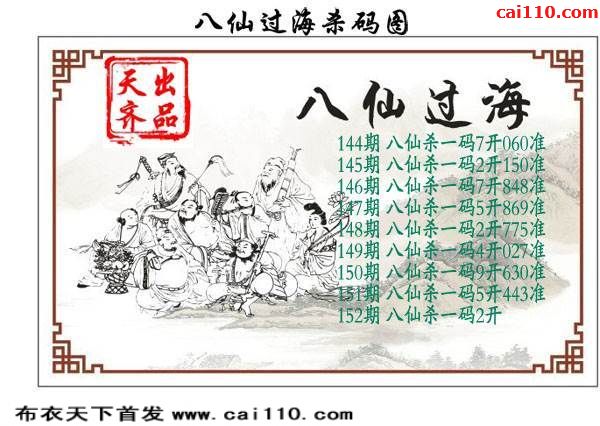 八仙过海杀码图
cai110.com
天出
齐品
八仙过海
144期 八仙杀一码7开060准
145期 八仙杀一码2开150准
146期 八仙杀一码7开848准
147期 八仙杀一码5开869准
148期 八仙杀一码2开775准
149期 八仙杀一码4开027准
150期 八仙杀一码9开630准
151期 八仙杀一码5开443准
152期 八仙杀一码2开
布衣天下首发 www.cai110.com